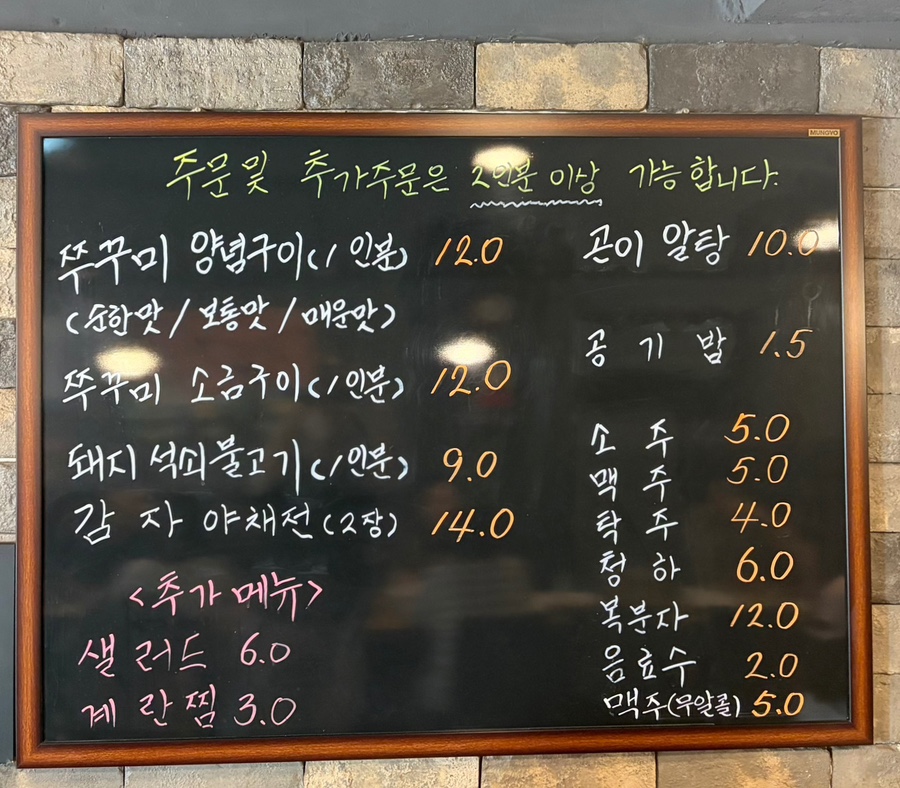 MUNGYO
주문 및 추가주문은 2인분 이상 가능합니다.
쭈꾸미 양념구이(1인분) 12.0
(순한맛/보통맛/매운맛)
쭈꾸미 소금구이(1인분) 12.0
돼지 석쇠불고기(1인분) 9.0
감자 야채전(2장) 14.0
<추가 메뉴>
샐러드 6.0
계란찜 3.0
곤이 알탕 10.0
공기밥 1.5
소주 5.0
맥주 5.0
탁주 4.0
청하 6.0
복분자 12.0
음료수 2.0
맥주(무알콜) 5.0